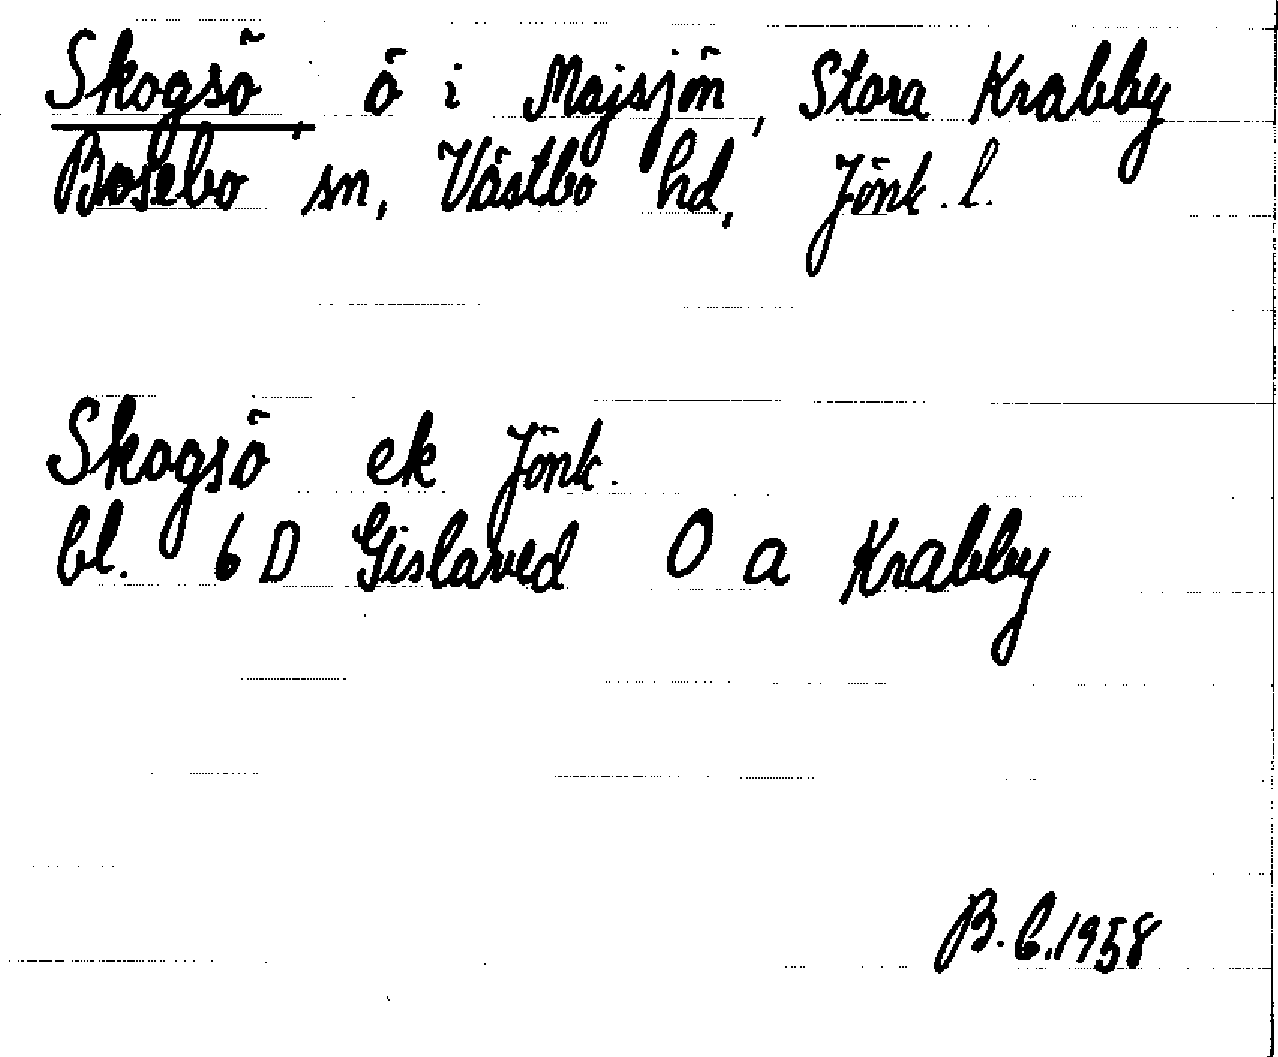 Skogsö, ö i Majsjön, Stora Krabby
Bosebo sn, Västbo hd, Jönk. l.
Skogsö ek Jönk.
bl. 6 D Gislaved 0 a Krabby
B.C.1958